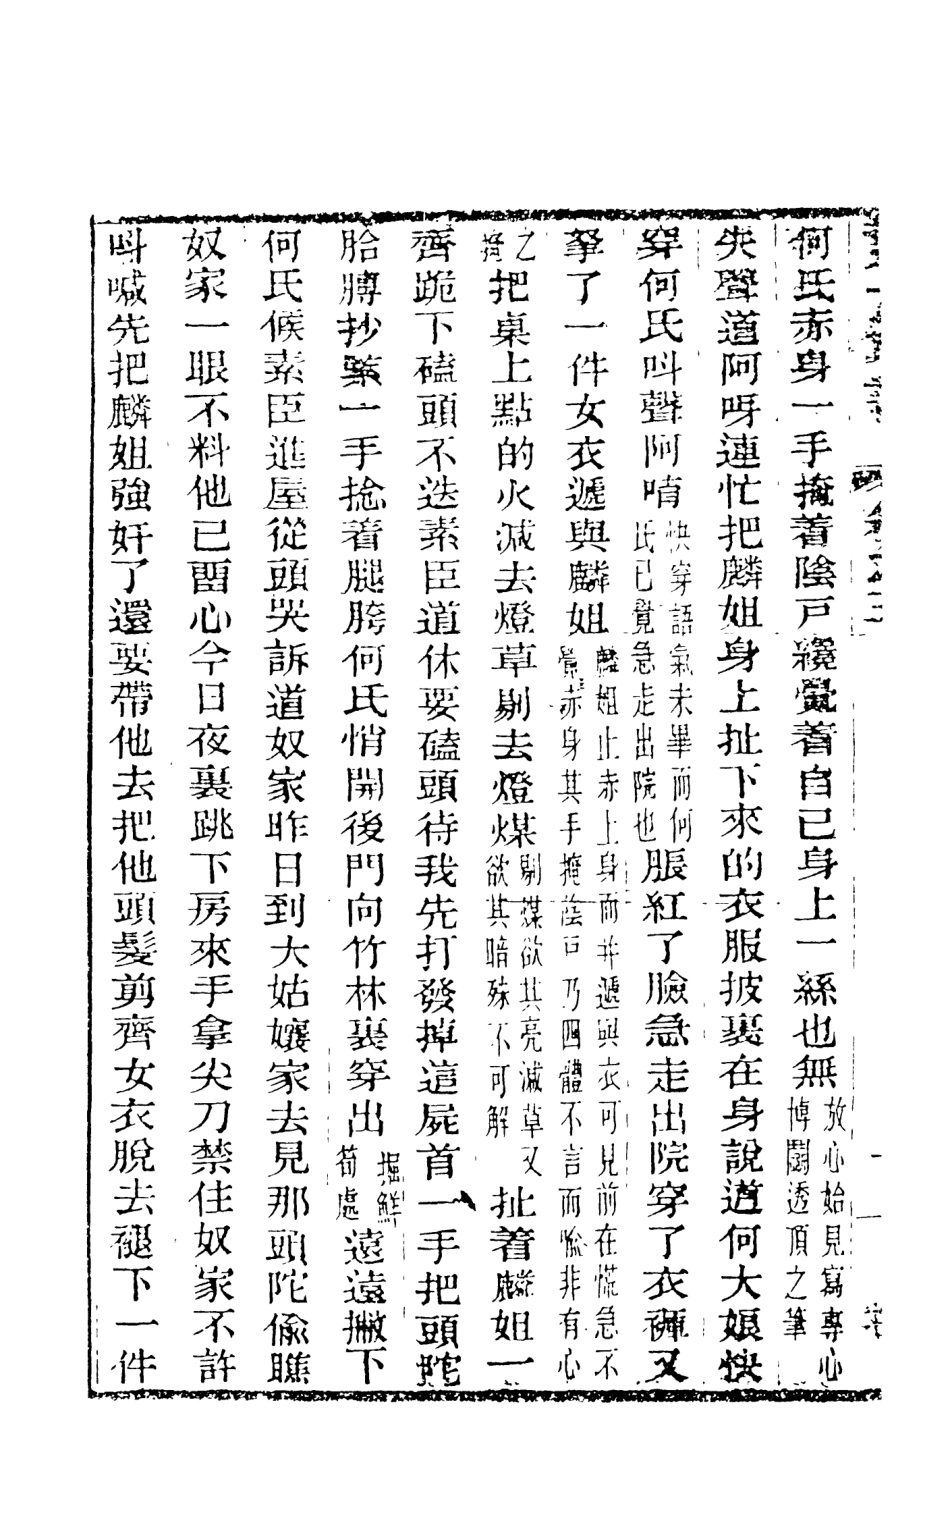 何氏赤身一手掩着陰戸纔覺着自已身上一絲也無放心始見寫專心博鬭透頂之筆
失聲道阿呀連忙把麟姐身上扯下來的衣服披裹在身說道何大娘快
穿何氏呌聲阿唷快穿語氣未畢而何氏已覺急走出院也脹紅了臉急走出院穿了衣褲又
拏了一件女衣遞與麟姐麟姐止赤上身而并遞與衣可見前在慌急不覺赤身其手掩陰戸乃四體不言而喻非有心
之掩把桌上點的火滅去燈草剔去燈煤剔煤欲其亮滅草又欲其暗殊不可解扯着麟姐一
齊跪下磕頭不迭素臣道休要磕頭待我先打發掉這屍首一手把頭陀
胳膊抄緊一手捻着腿胯何氏悄開後門向竹林裏穿出掘鮮筍處遠遠撇下
何氏候素臣進屋從頭哭訴道奴家昨日到大姑孃家去見那頭陀偷瞧
奴家一眼不料他已畱心今日夜裏跳下房來手拿尖刀禁住奴家不許
呌喊先把麟姐強奸了還要帶他去把他頭髮剪齊女衣脫去褪下一件